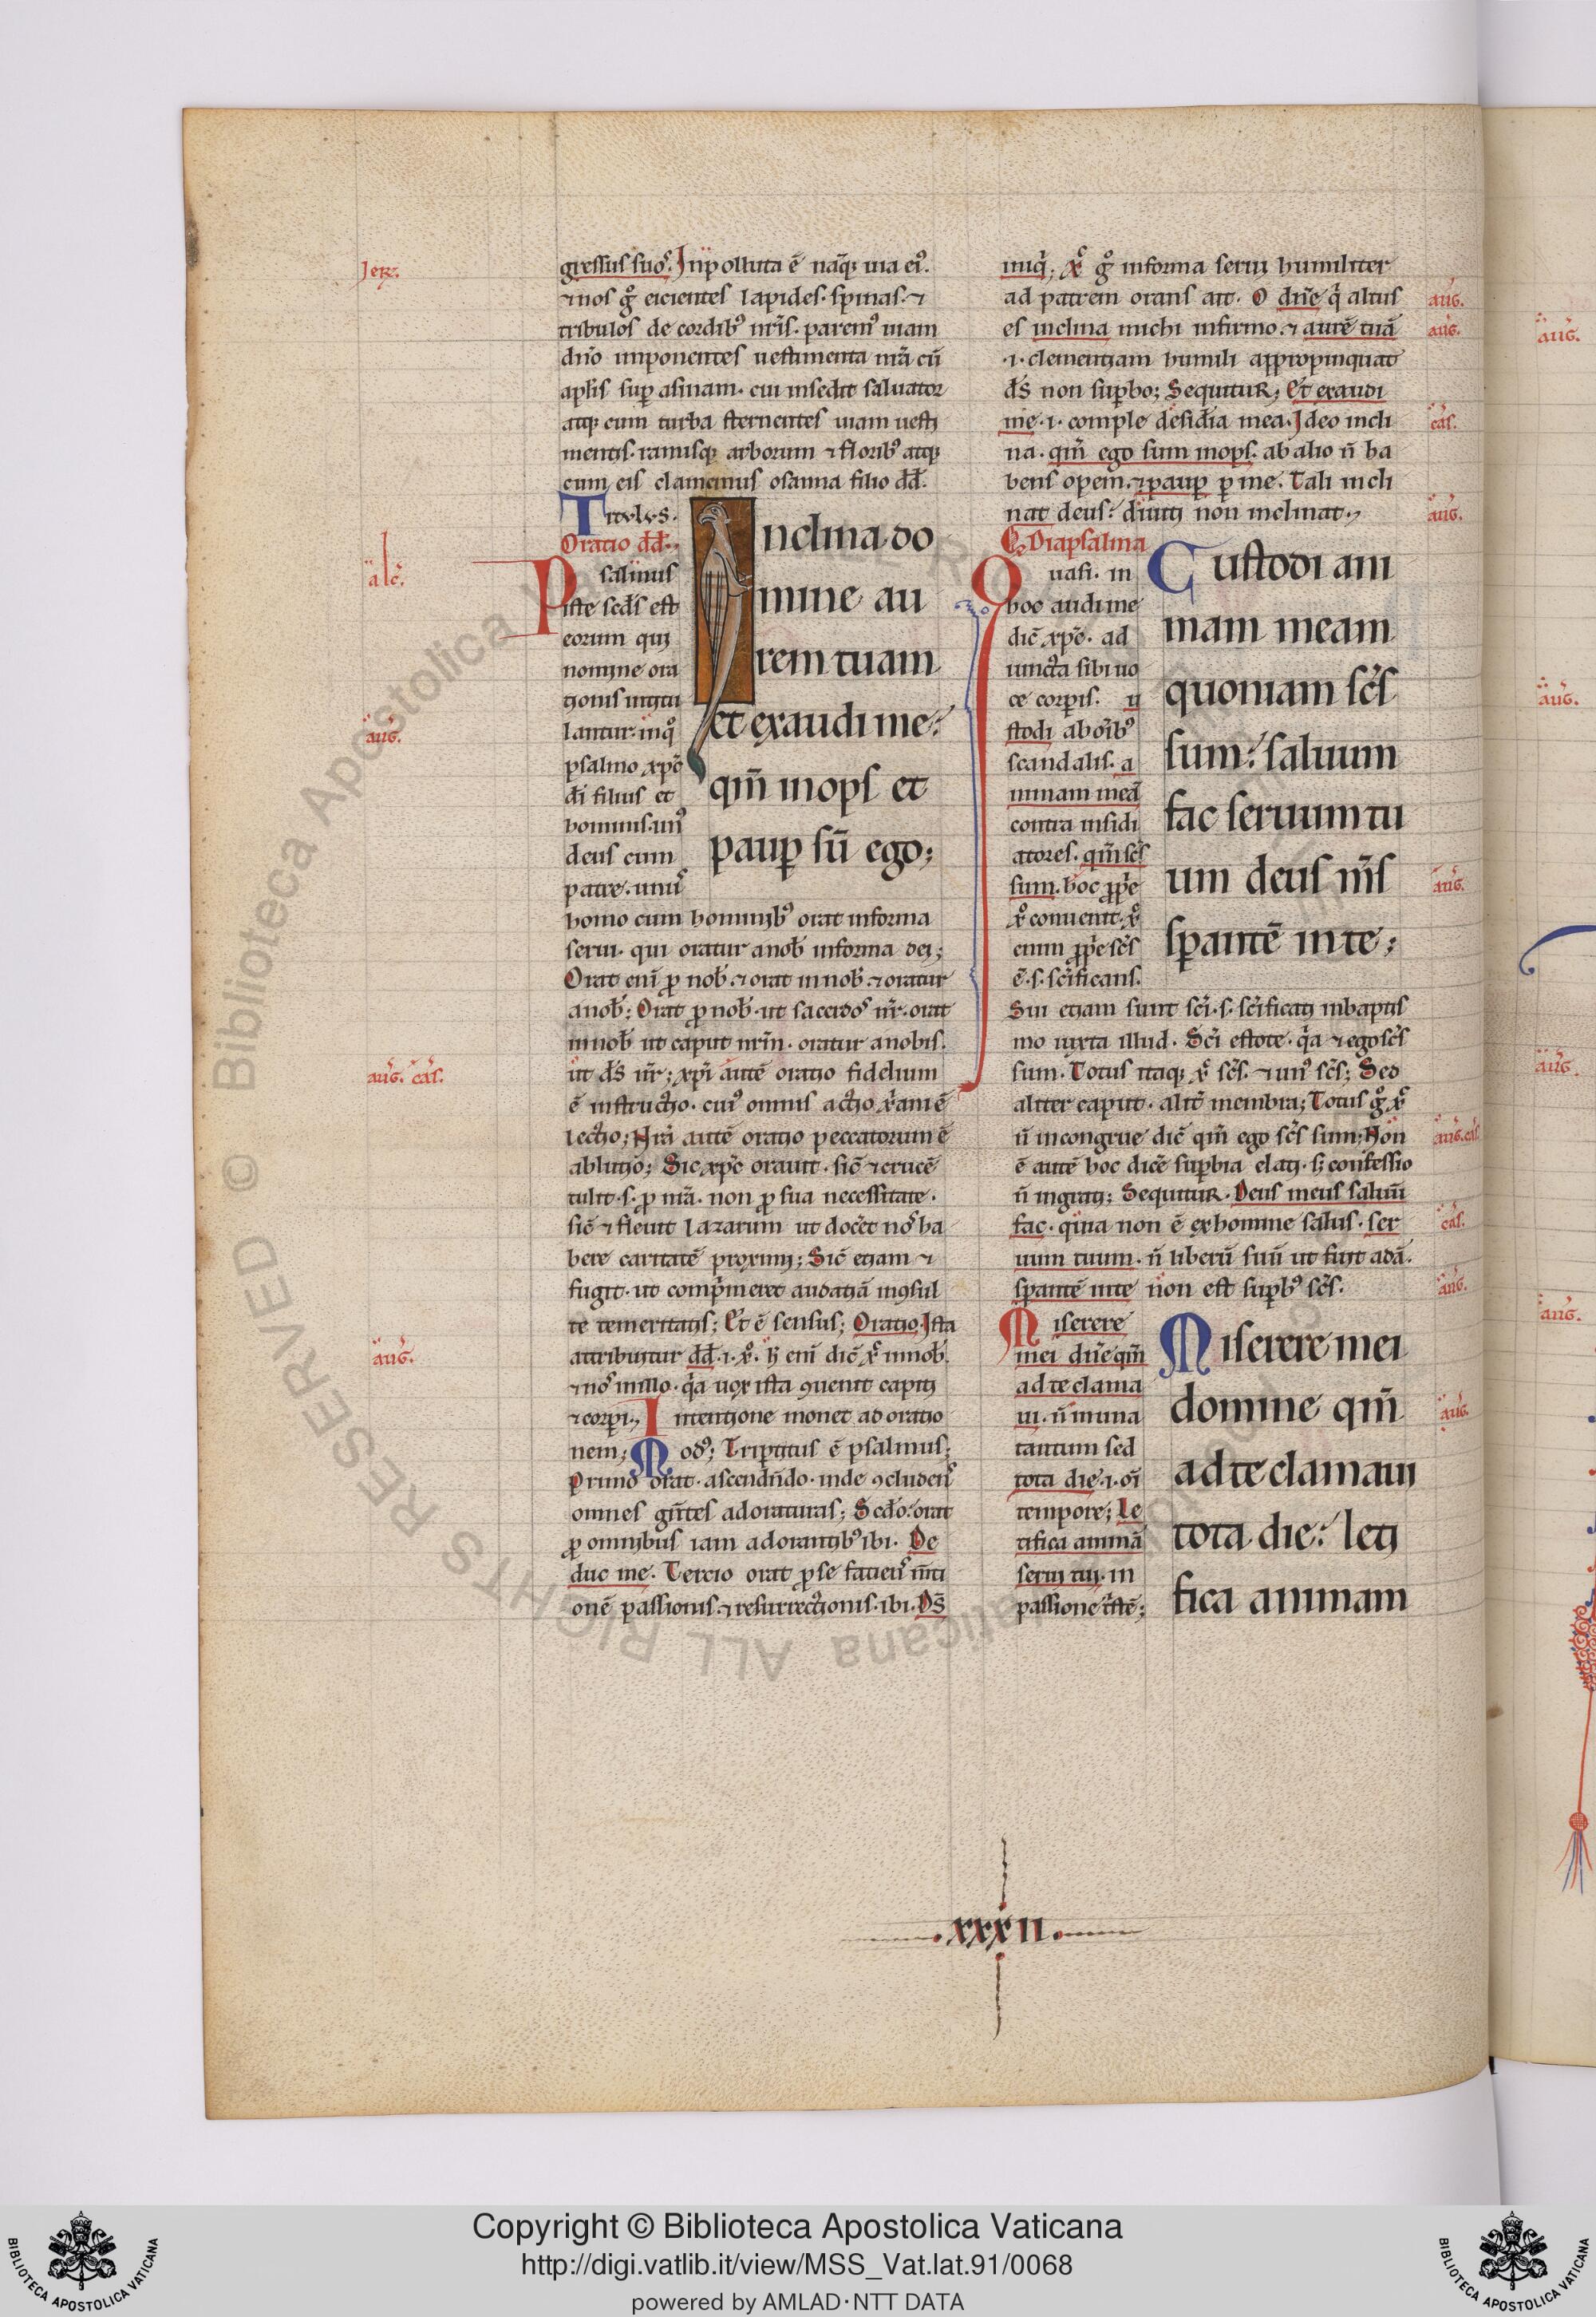 gressus suoꝰ. Inpolluta ē nāqꝫ uia eiꝰ.
⁊ nos gͦ eicientes lapides. spinas. ⁊
tribulos de cordibꝰ nr̄is. paremꝰ uiam
dn̄o imponentes uestimenta nr̄a cū
apl̄is suꝑ asinam. cui insedit saluator
atqꝫ cum turba sternentes uiam uesti
mentis. ramisqꝫ arborum ⁊ floribꝰ atqꝫ
cum eis clamemus osanna filio dd̄.
Titulus.
Oratio dd̄.
Psalmus
iste scd̄s est
eorum qui
nomine ora
tionis intitu
lantur. in qͦ
psalmo xp̄c
dī filius et
hominis. unꝰ
deus cum
patre. unuꝰ
homo cum hominibꝰ orat in forma
serui. qui oratur a nob̄ in forma dei;
Orat enī ꝓ nob̄. ⁊ orat in nob̄. ⁊ oratur
a nob̄; Orat ꝓ nob̄. ut sacerdoˢ nr̄. orat
in nob̄ ut caput nr̄m. oratur a nobis.
ut d̄s nr̄; xp̄i autē oratio fidelium
ē instructio. cuiꝰ omnis actio xr̄iani ē
lectio; Nr̄a autē oratio peccatorum ē
ablutio; Sic xp̄c orauit. sic̄ ⁊ crucē
tulit. s. ꝓ nr̄a. non ꝓ sua necessitate.
sic̄ ⁊ fleuit lazarum ut doc̄et noˢ ha
bere caritatē proximi; Sic̄ etiam ⁊
fugit. ut comp̄meret audatiā inꝯsul
te temeritatis; Et ē sensus; Oratio. Ista
attribuitur dd̄. i. xͦ. h̄ enī dic̄ xͦ in nob̄.
⁊ noˢ in illo. qͣa uox ista ꝯuenit capiti
⁊ corpi. Intentione monet ad oratio
nem; Modꝰ; Tripartitus ē psalmus;
Primo orat. ascendn̄do. inde ꝯcludenˢ
omnes gn̄tes adoraturas; Sc̄do. orat
ꝓ omnibus iam adorantibꝰ ibi. De
duc me. Tercio orat ꝓ se facienˢ m̄ti
onē passionis. ⁊ resurrectionis. ibi. D̄s
Inclina do
mine au
rem tuam
et exaudi me.
qm̄ inops et
pauꝑ sū ego;
iniqͥ; xͦ gͦ in forma serui humiliter
ad patrem orans ait. O dn̄e qͥ altus
es inclina michi infirmo. ⁊ aurē tuā
.i. clementiam humili appropinquat
d̄s non suꝑbo; Sequitur; Et exaudi
me. i. comple desid̄ia mea. Ideo incli
na. qm̄ ego sum inops. ab alio n̄ ha
bens opem. ⁊ pauꝑ ꝑ me. Tali incli
nat deus. diuiti non inclinat.
Diapsalma
Quasi. in
hoc audi me
dic̄ xp̄c. ad
uincta sibi uo
ce corꝑis. cu
stodi ab oīibꝰ
scandalis. a
nimam meā
contra insidi
atores. qm̄ sc̄s
sum. hoc ꝓprie
xͦ conuenit. xͦ
enim ꝓprie sc̄s
ē. s. sc̄ificans.
Sui etiam sunt sc̄i. s. sc̄ificati in baptis
mo iuxta illud. Sc̄i estote. qͣa ⁊ ego sc̄s
sum. Totus itaqꝫ xͦ sc̄s. ⁊ unꝰ sc̄s; Sed
aliter caput. alit̄ membra; Totus gͦ xͦ
n̄ incongrue dic̄ qm̄ ego sc̄s sum; Non
ē autē hoc dic̄e suꝑbia elati. sꝫ confessio
n̄ ingrati; Sequitur. Deus meus saluū
fac. quia non ē ex homine salus. ser
uum tuum. n̄ liberū suū ut fuit adā.
sꝑantē in te non est suꝑbꝰ sc̄s.
Miserere
mei dn̄e qm̄
ad te clama
ui. n̄ in una
tantum sed
tota die. i. oī
tempore; Le
tifica animā
serui tui. in
passione tͥstē;
Custodi ani
mam meam
quoniam sc̄s
sum. saluum
fac seruum tu
um deus m̄s
sꝑantē in te;
Miserere mei
domine qm̄
ad te clamaui
tota die. leti
fica animam
Ier.
alc̄.
auḡ.
auḡ. cas̄.
auḡ.
auḡ.
auḡ.
cas̄.
auḡ.
auḡ.
aug. cas̄.
cas̄.
auḡ.
auḡ.
auḡ.
auḡ.
auḡ.
auḡ.
.xxxii.
Biblioteca Apostolica Vaticana ALL RIGHTS RESERVED ©
Copyright © Biblioteca Apostolica Vaticana
http://digi.vatlib.it/view/MSS_Vat.lat.91/0068
powered by AMLAD·NTT DATA
BIBLIOTECA APOSTOLICA VATICANA
BIBLIOTECA APOSTOLICA VATICANA